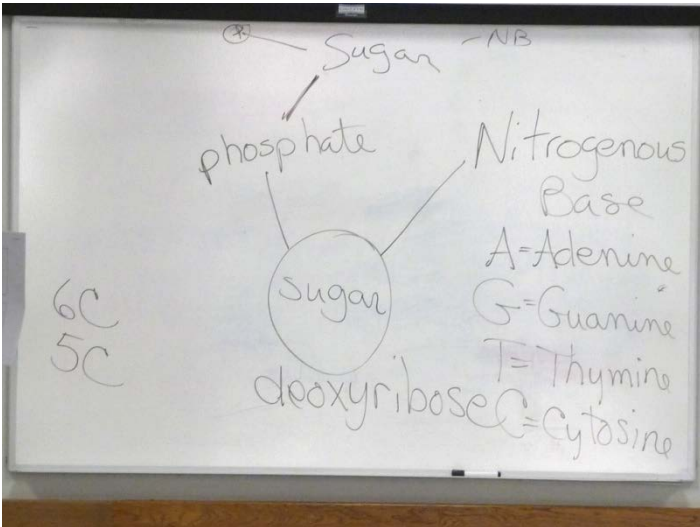 Sugar - NB
phosphate
Nitrogenous
Base
A=Adenine
G=Guanine
T=Thymine
C=Cytosine
sugar
deoxyribose
6C
5C